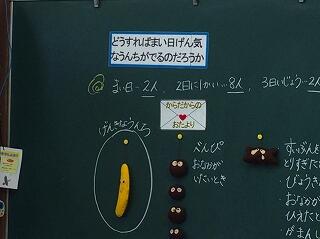 どうすればまい日げん気
なうんちがでるのだろうか
まい日…2人、2日に1かい…8人、3日いじょう…2人
からだからの
おたより
げんきなうんち
べんぴ
おなかが
いたいとき
すいぶんを
とりすぎた
びょうき
おなかが
ひえた
がまんし